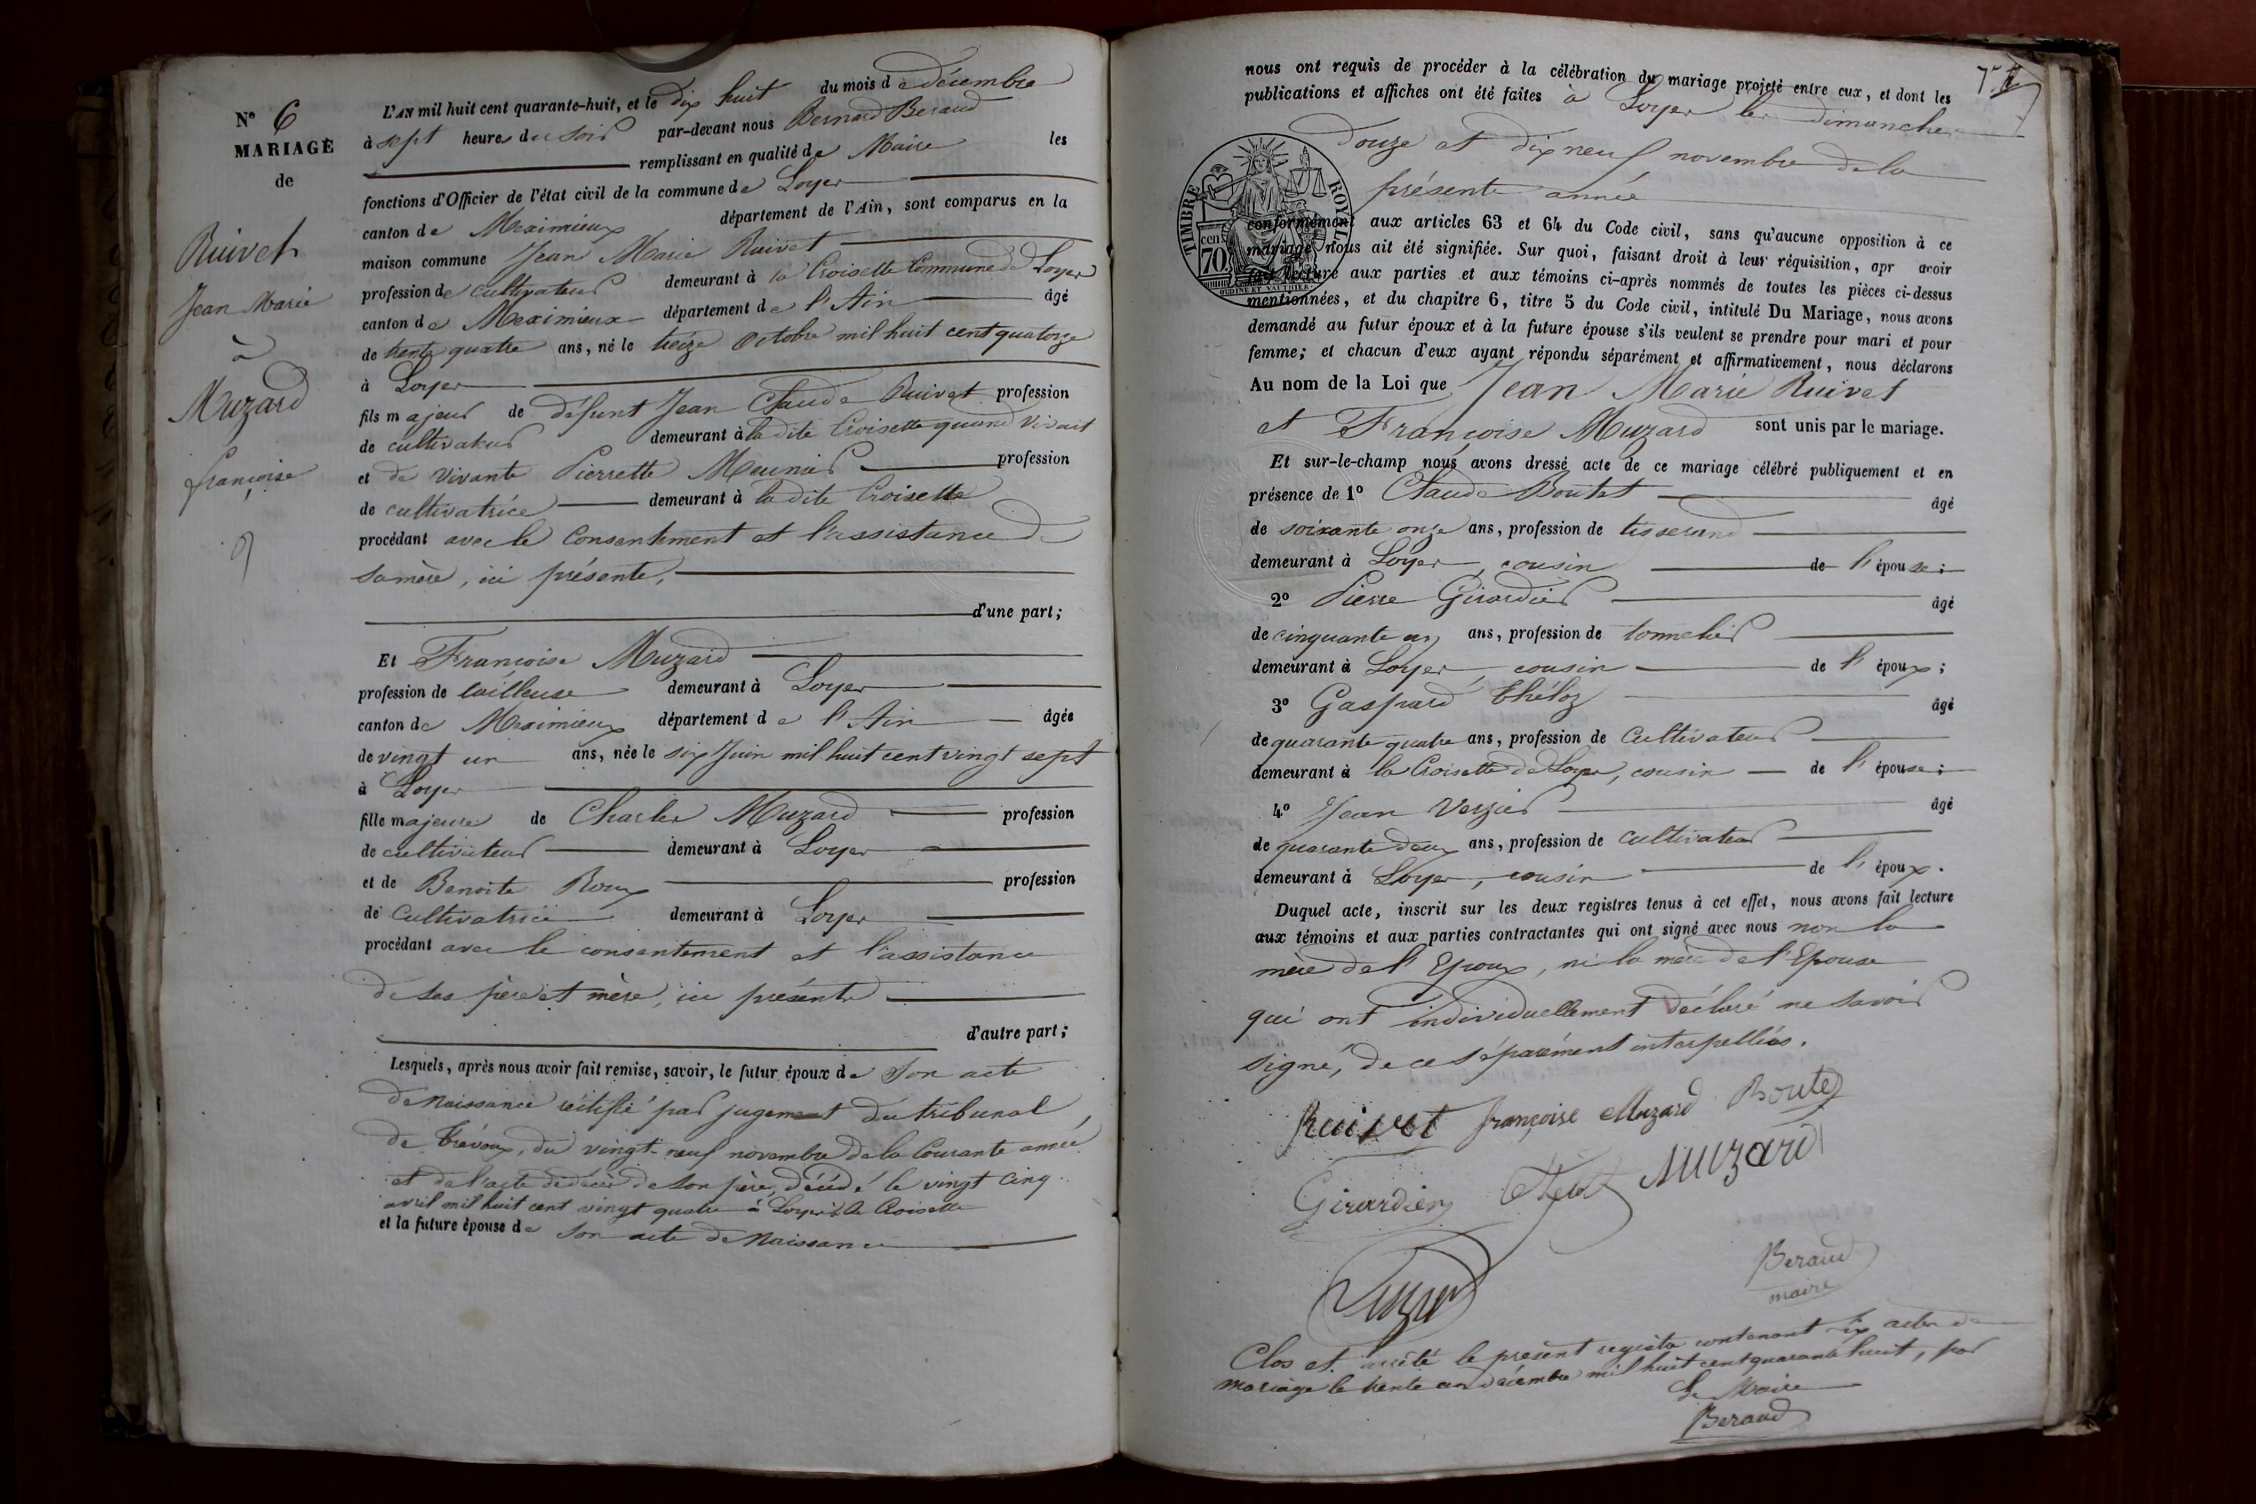 N° 6
MARIAGE
de
Ruivet
Jean Marie
à
Muzard
françoise
L'AN mil huit cent quarante-huit, et le dix huit du mois de décembre
à sept heures du soir par-devant nous Bernard Beraud
remplissant en qualité de Maire les
fonctions d'Officier de l'état civil de la commune de Loyer
canton de Meximieux département de l'Ain, sont comparus en la
maison commune Jean Marie Ruivet
profession de cultivateur demeurant à la Croisette Commune de Loyer
canton de Meximieux département de l'Ain âgé
de trente quatre ans, né le treize octobre mil huit cent quatorze
à Loyer
fils majeur de défunt Jean Claude Ruivet profession
de cultivateur demeurant à ladite Croisette quand vivait
et de vivante Pierrette Meunier profession
de cultivatrice demeurant à ladite Croisette
procédant avec le consentement et l'assistance de
sa mère, ici présente,
d'une part;
Et Françoise Muzard
profession de tailleuse demeurant à Loyer
canton de Meximieux département de l'Ain âgée
de vingt un ans, née le six Juin mil huit cent vingt sept
à Loyer
fille majeure de Charles Muzard profession
de cultivateur demeurant à Loyer
et de Benoite Roux profession
de Cultivatrice demeurant à Loyer
procédant avec le consentement et l'assistance
de ses père et mère, ici présents
d'autre part;
Lesquels, après nous avoir fait remise, savoir, le futur époux de son acte
de naissance réctifié par jugement du tribunal
de Trévoux, du vingt-neuf novembre de la Courante année
et de l'acte de décès de son père, décédé le vingt cinq
avril mil huit cent vingt quatre à Loyer à la Croisette
et la future épouse de son acte de naissance
nous ont requis de procéder à la célébration du mariage projeté entre eux, et dont les
publications et affiches ont été faites à Loyer les dimanches
Douze et dix neuf novembre de la
présente année
TIMBRE ROYAL
cen 70
OUDINE ET VAUTHIER
conformément aux articles 63 et 64 du Code civil, sans qu'aucune opposition à ce
mariage nous ait été signifiée. Sur quoi, faisant droit à leur réquisition, apr avoir
fait lecture aux parties et aux témoins ci-après nommés de toutes les pièces ci-dessus
mentionnées, et du chapitre 6, titre 5 du Code civil, intitulé Du Mariage, nous avons
demandé au futur époux et à la future épouse s'ils veulent se prendre pour mari et pour
femme; et chacun d'eux ayant répondu séparément et affirmativement, nous déclarons
Au nom de la Loi que Jean Marie Ruivet
et Françoise Muzard sont unis par le mariage.
Et sur-le-champ nous avons dressé acte de ce mariage célébré publiquement et en
présence de 1° Claude Boutet âgé
de soixante onze ans, profession de tisserand
demeurant à Loyer, cousin de l'épouse;
2° Pierre Girardier âgé
de cinquante un ans, profession de tonnelier
demeurant à Loyer, cousin de l'époux;
3° Gaspard Théloz âgé
de quarante quatre ans, profession de Cultivateur
demeurant à la Croisette de Loyer, cousin de l'épouse;
4° Jean Verzier âgé
de quarante deux ans, profession de cultivateur
demeurant à Loyer, cousin de l'époux.
Duquel acte, inscrit sur les deux registres tenus à cet effet, nous avons fait lecture
aux témoins et aux parties contractantes qui ont signé avec nous non la
mère de l'Epoux, ni la mère de l'Epouse
qui ont individuellement déclaré ne savoir
signé, de ce séparément interpellées.
Ruivet françoise Muzard Boutet
Girardier Muzard
Beraud
maire
Clos et arrêté le présent registre contenant six actes de
mariage le trente un décembre mil huit cent quarante huit, par
Le Maire
Beraud